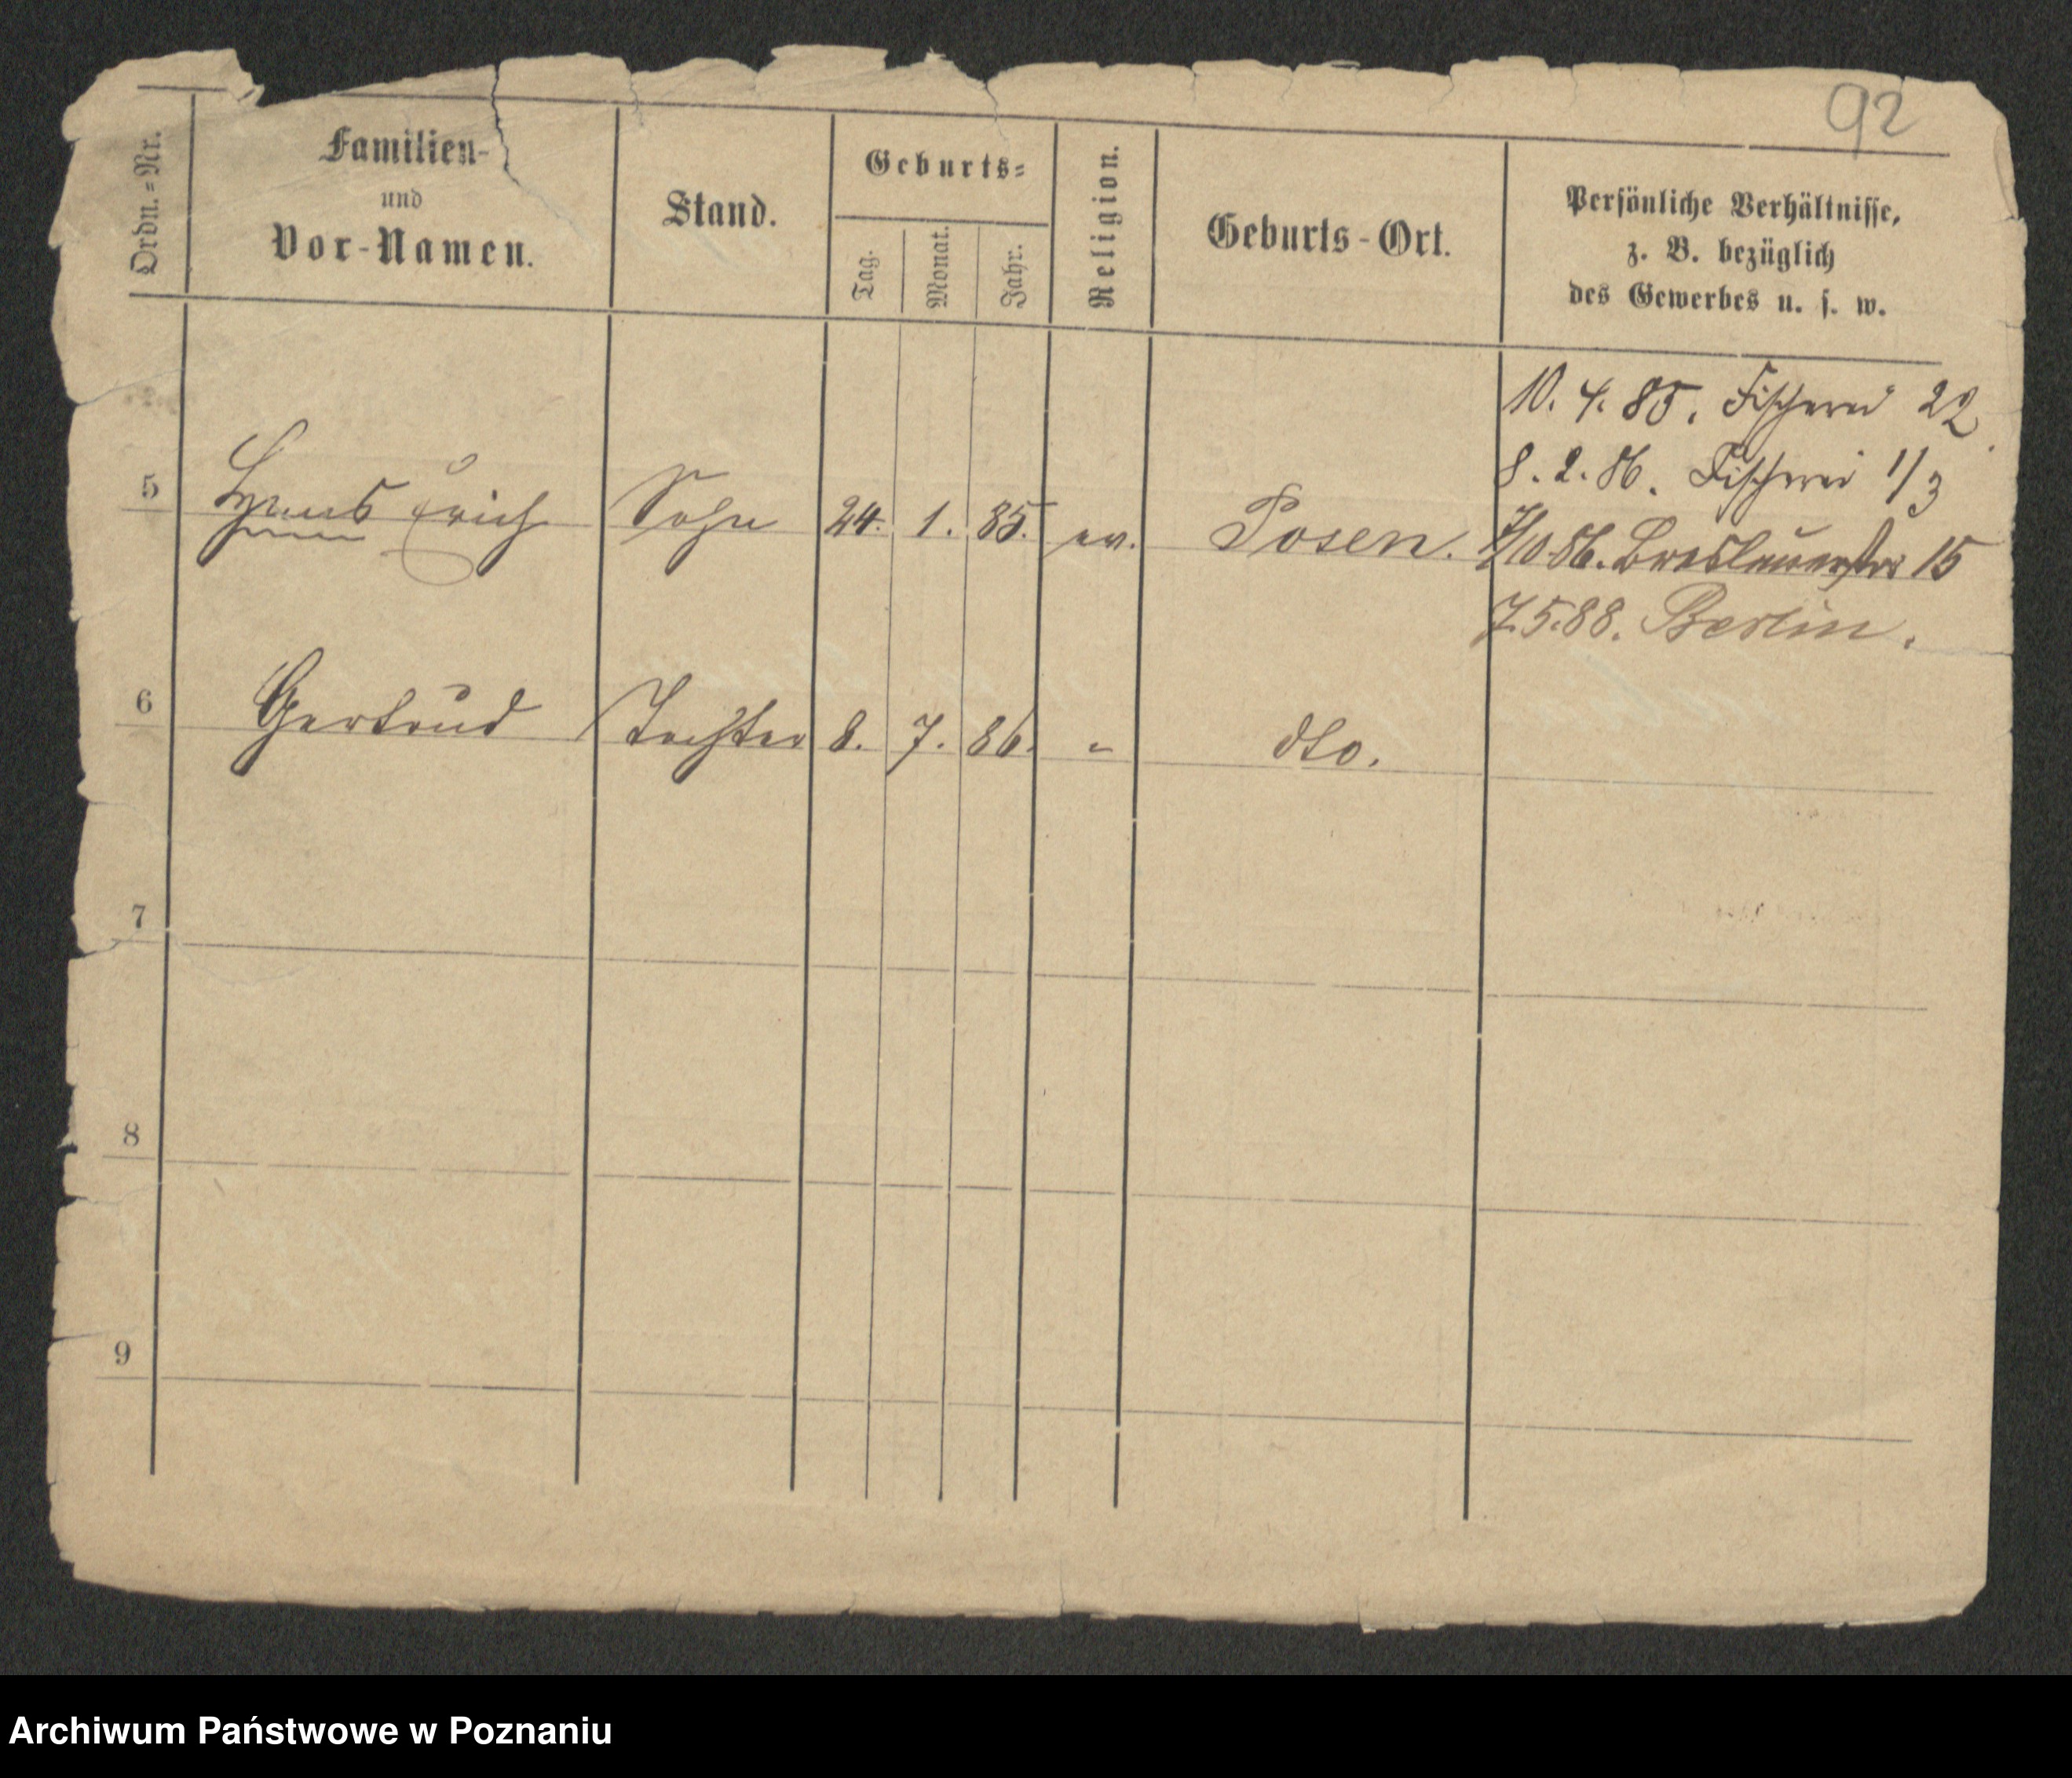 92
Ordn.=Nr.
Familien-
und
Vor-Namen.
Stand.
Geburts=
Tag.
Monat.
Jahr.
Religion.
Geburts-Ort.
Persönliche Verhältnisse,
z. B. bezüglich
des Gewerbes u. s. w.
10. 4. 85. Fischerei 22
8. 2. 86. Fischerei 1/3
5 Hans Erich Sohn 24. 1. 85. ev. Posen. 7/10 86. Breslauerstr 15
7.5.88. Berlin.
6 Gertrud Tochter 8. 7. 86. " dto.
7
8
9
Archiwum Państwowe w Poznaniu